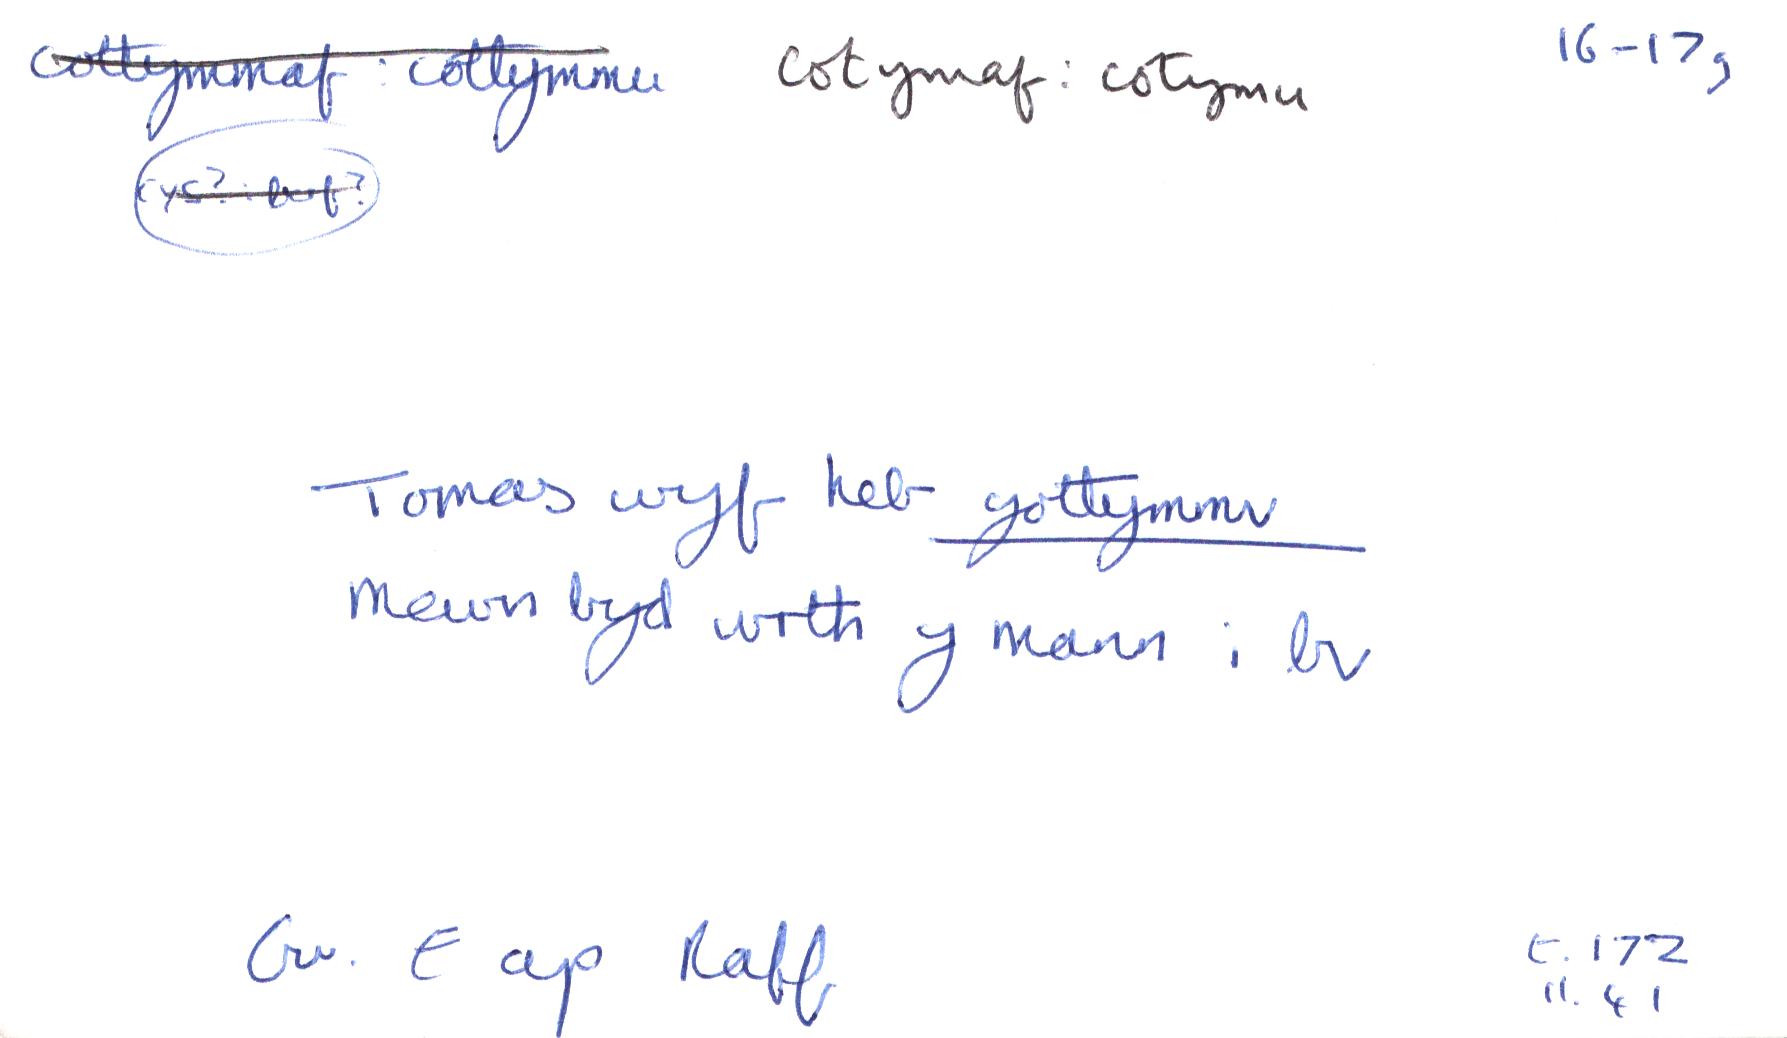 cottymmaf : cottymmu cotymaf : cotymu 16-17g
cys?: bnf?
Tomas wyf heb gottymmv
Mewn byd wrth y mann i bv
Gw. E ap Raff
t. 172
ll. 41